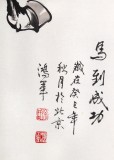 馬到成功
歲在癸巳年
秋月於北京
鴻軍